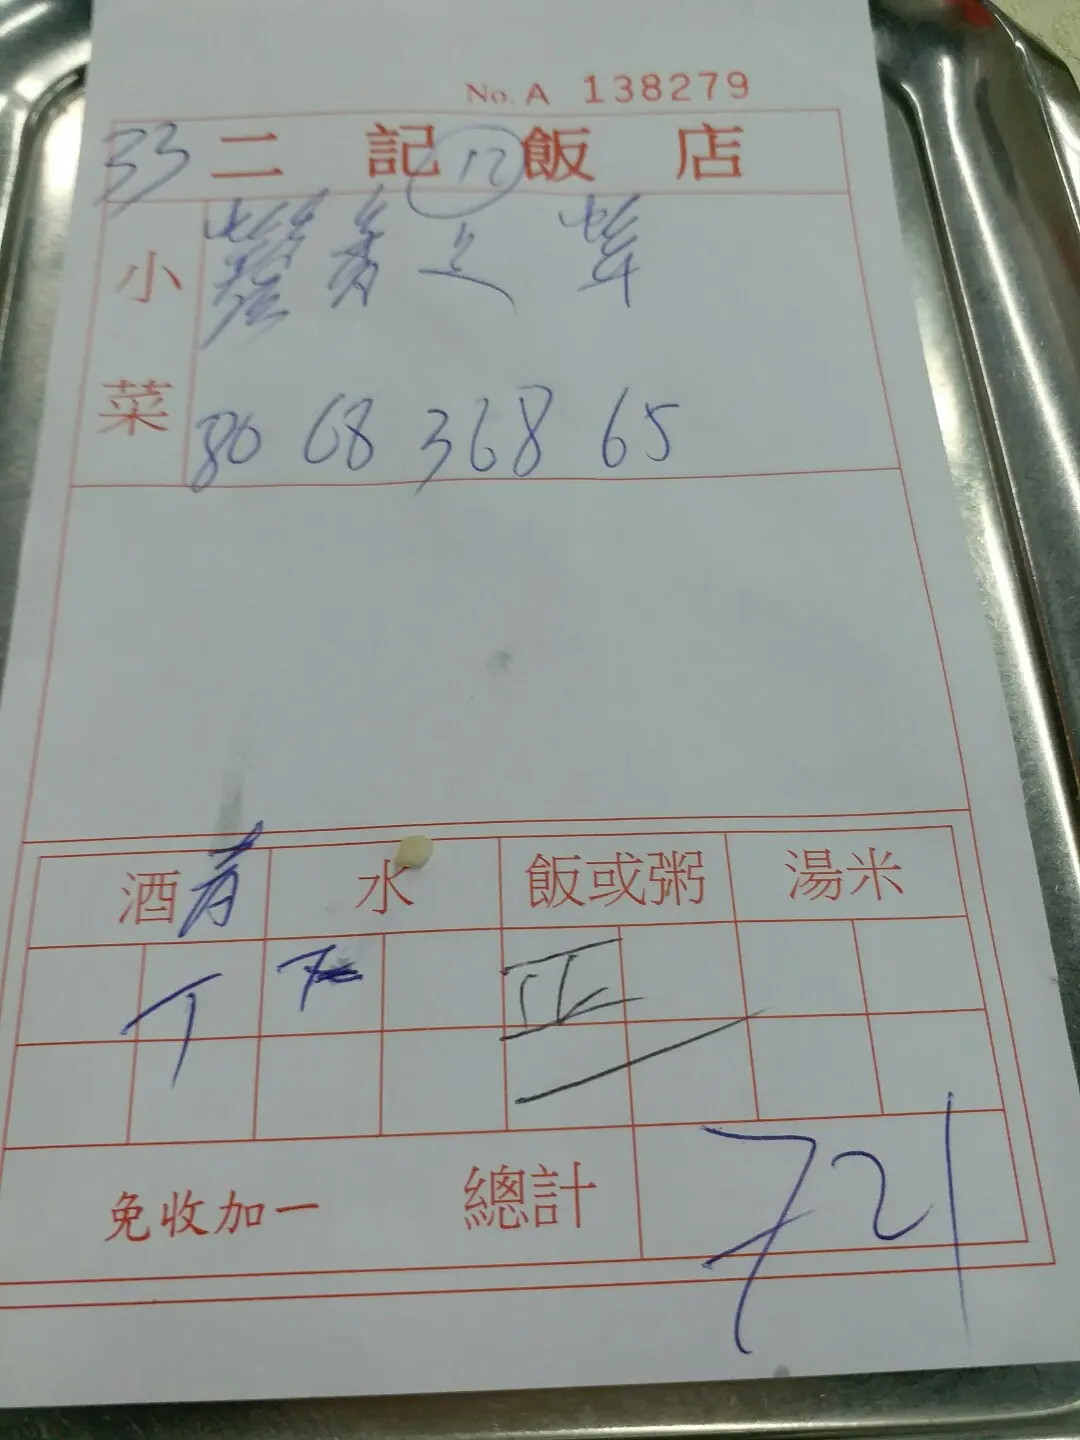 No. A 138279
33 二記飯店 12
小菜
80 68 368 65
酒 水 飯或粥 湯米
丁 正
一
免收加一 總計 721